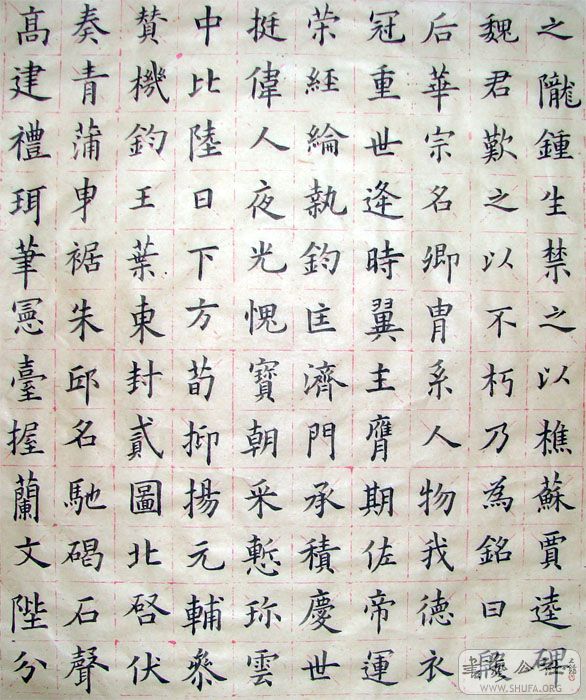 之隴鍾生禁之以樵蘇賈逵碑
魏君歎之以不朽乃為銘曰殷
后華宗名卿胄系人物我德衣
冠重世逢時翼主膺期佐帝運
荣經綸執鈞匡濟門承積慶世
挺偉人夜光愧寶朝采慙珎雲
中比陸日下方荀抑揚元輔叅
賛機鈞王葉東封貳圖北啓伏
奏青蒲申裾朱邱名馳碣石聲
髙建禮珥筆憲臺握蘭文陛分
WWW.SHUFA.ORG